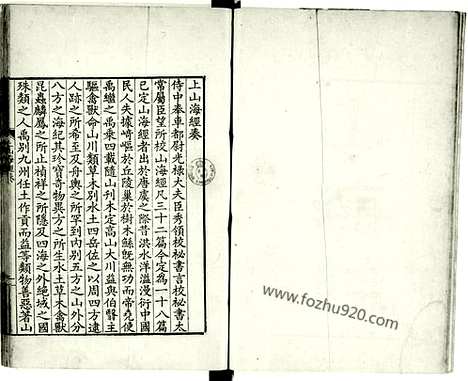 上山海經奏
侍中奉車都尉光祿大夫臣秀領校祕書言校祕書太
常屬臣望所校山海經凡三十二篇今定爲一十八篇
已定山海經者出於唐虞之際昔洪水洋溢漫衍中國
民人失據崎嶇於丘陵巢於樹木鯀旣無功而帝堯使
禹繼之禹乘四載隨山刋木定高山大川益與伯翳主
驅禽獸命山川類草木別水土四岳佐之以周四方逮
人跡之所希至及舟輿之所罕到內別五方之山外分
八方之海紀其珍寶奇物異方之所生水土草木禽獸
昆蟲麟鳳之所止禎祥之所隱及四海之外絕域之國
殊類之人禹別九州任土作貢而益等類物善惡著山
www.fozhu920.com